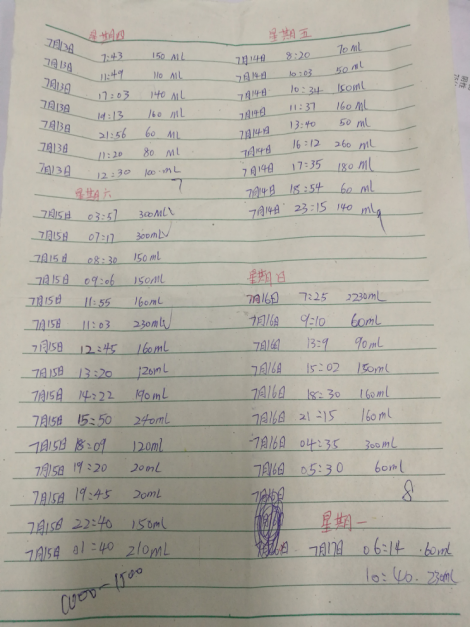 星期四
7月13日 7:43 150 ML
7月13日 11:49 110 ML
7月13日 17:03 140 ML
7月13日 19:13 160 ML
7月13日 21:56 60 ML
7月13日 11:20 80 ml
7月13日 12:30 100 ml
7
星期五
7月14日 8:20 70 ml
7月14日 10:03 50 ml
7月14日 10:34 150ml
7月14日 11:37 160 ml
7月14日 13:40 50 ml
7月14日 16:12 260 ml
7月14日 17:35 180 ml
7月14日 18:54 60 ml
7月14日 23:15 140 ml
9
星期六
7月15日 03:57 300ML
7月15日 07:17 300mL
7月15日 08:30 150mL
7月15日 09:06 150mL
7月15日 11:55 160mL
7月15日 11:03 230mL
7月15日 12:45 160mL
7月15日 13:20 120mL
7月15日 14:22 190mL
7月15日 15:50 240mL
7月15日 18:09 120mL
7月15日 19:20 20mL
7月15日 19:45 20mL
7月15日 22:40 150mL
7月15日 01:40 210mL
1000-1500
星期日
7月16日 7:25 2230mL
7月16日 9:10 60mL
7月16日 13:9 90mL
7月16日 15:02 150mL
7月16日 18:30 160mL
7月16日 21:15 160mL
7月16日 04:35 300mL
7月16日 05:30 60mL
7月16日 8
星期一
7月17日 06:14 .60mL
10:40. 230mL